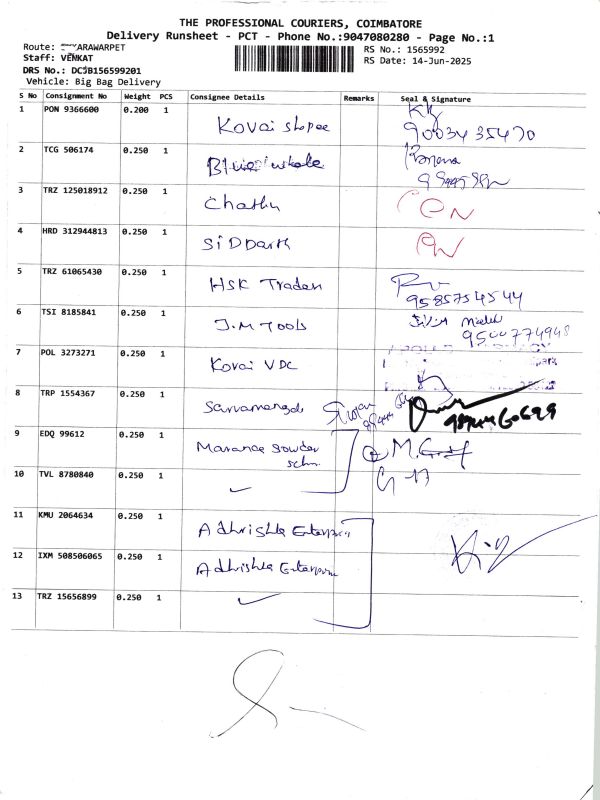 THE PROFESSIONAL COURIERS, COIMBATORE
Delivery Runsheet - PCT - Phone No.:9047080280 - Page No.:1
Route: ARAWARPET
RS No.: 1565992
Staff: VENKAT
RS Date: 14-Jun-2025
DRS No.: DCJB156599201
Vehicle: Big Bag Delivery
S No Consignment No Weight PCS Consignee Details Remarks Seal & Signature
1 PON 9366600 0.200 1 Kovai shopee
9003435470
2 TCG 506174 0.250 1 Blue whale
3 TRZ 125018912 0.250 1 Chathu
4 HRD 312944813 0.250 1 SiDDarth
5 TRZ 61065430 0.250 1 HSK Traders
9585754544
6 TSI 8185841 0.250 1 J.M Tools
9500774948
7 POL 3273271 0.250 1 Kovai VDC
8 TRP 1554367 0.250 1
9 EDQ 99612 0.250 1
10 TVL 8780840 0.250 1 ✓
11 KMU 2064634 0.250 1 Adhrishta Enterprises
12 IXM 508506065 0.250 1 Adhrishta Enterprises
13 TRZ 15656899 0.250 1 ✓